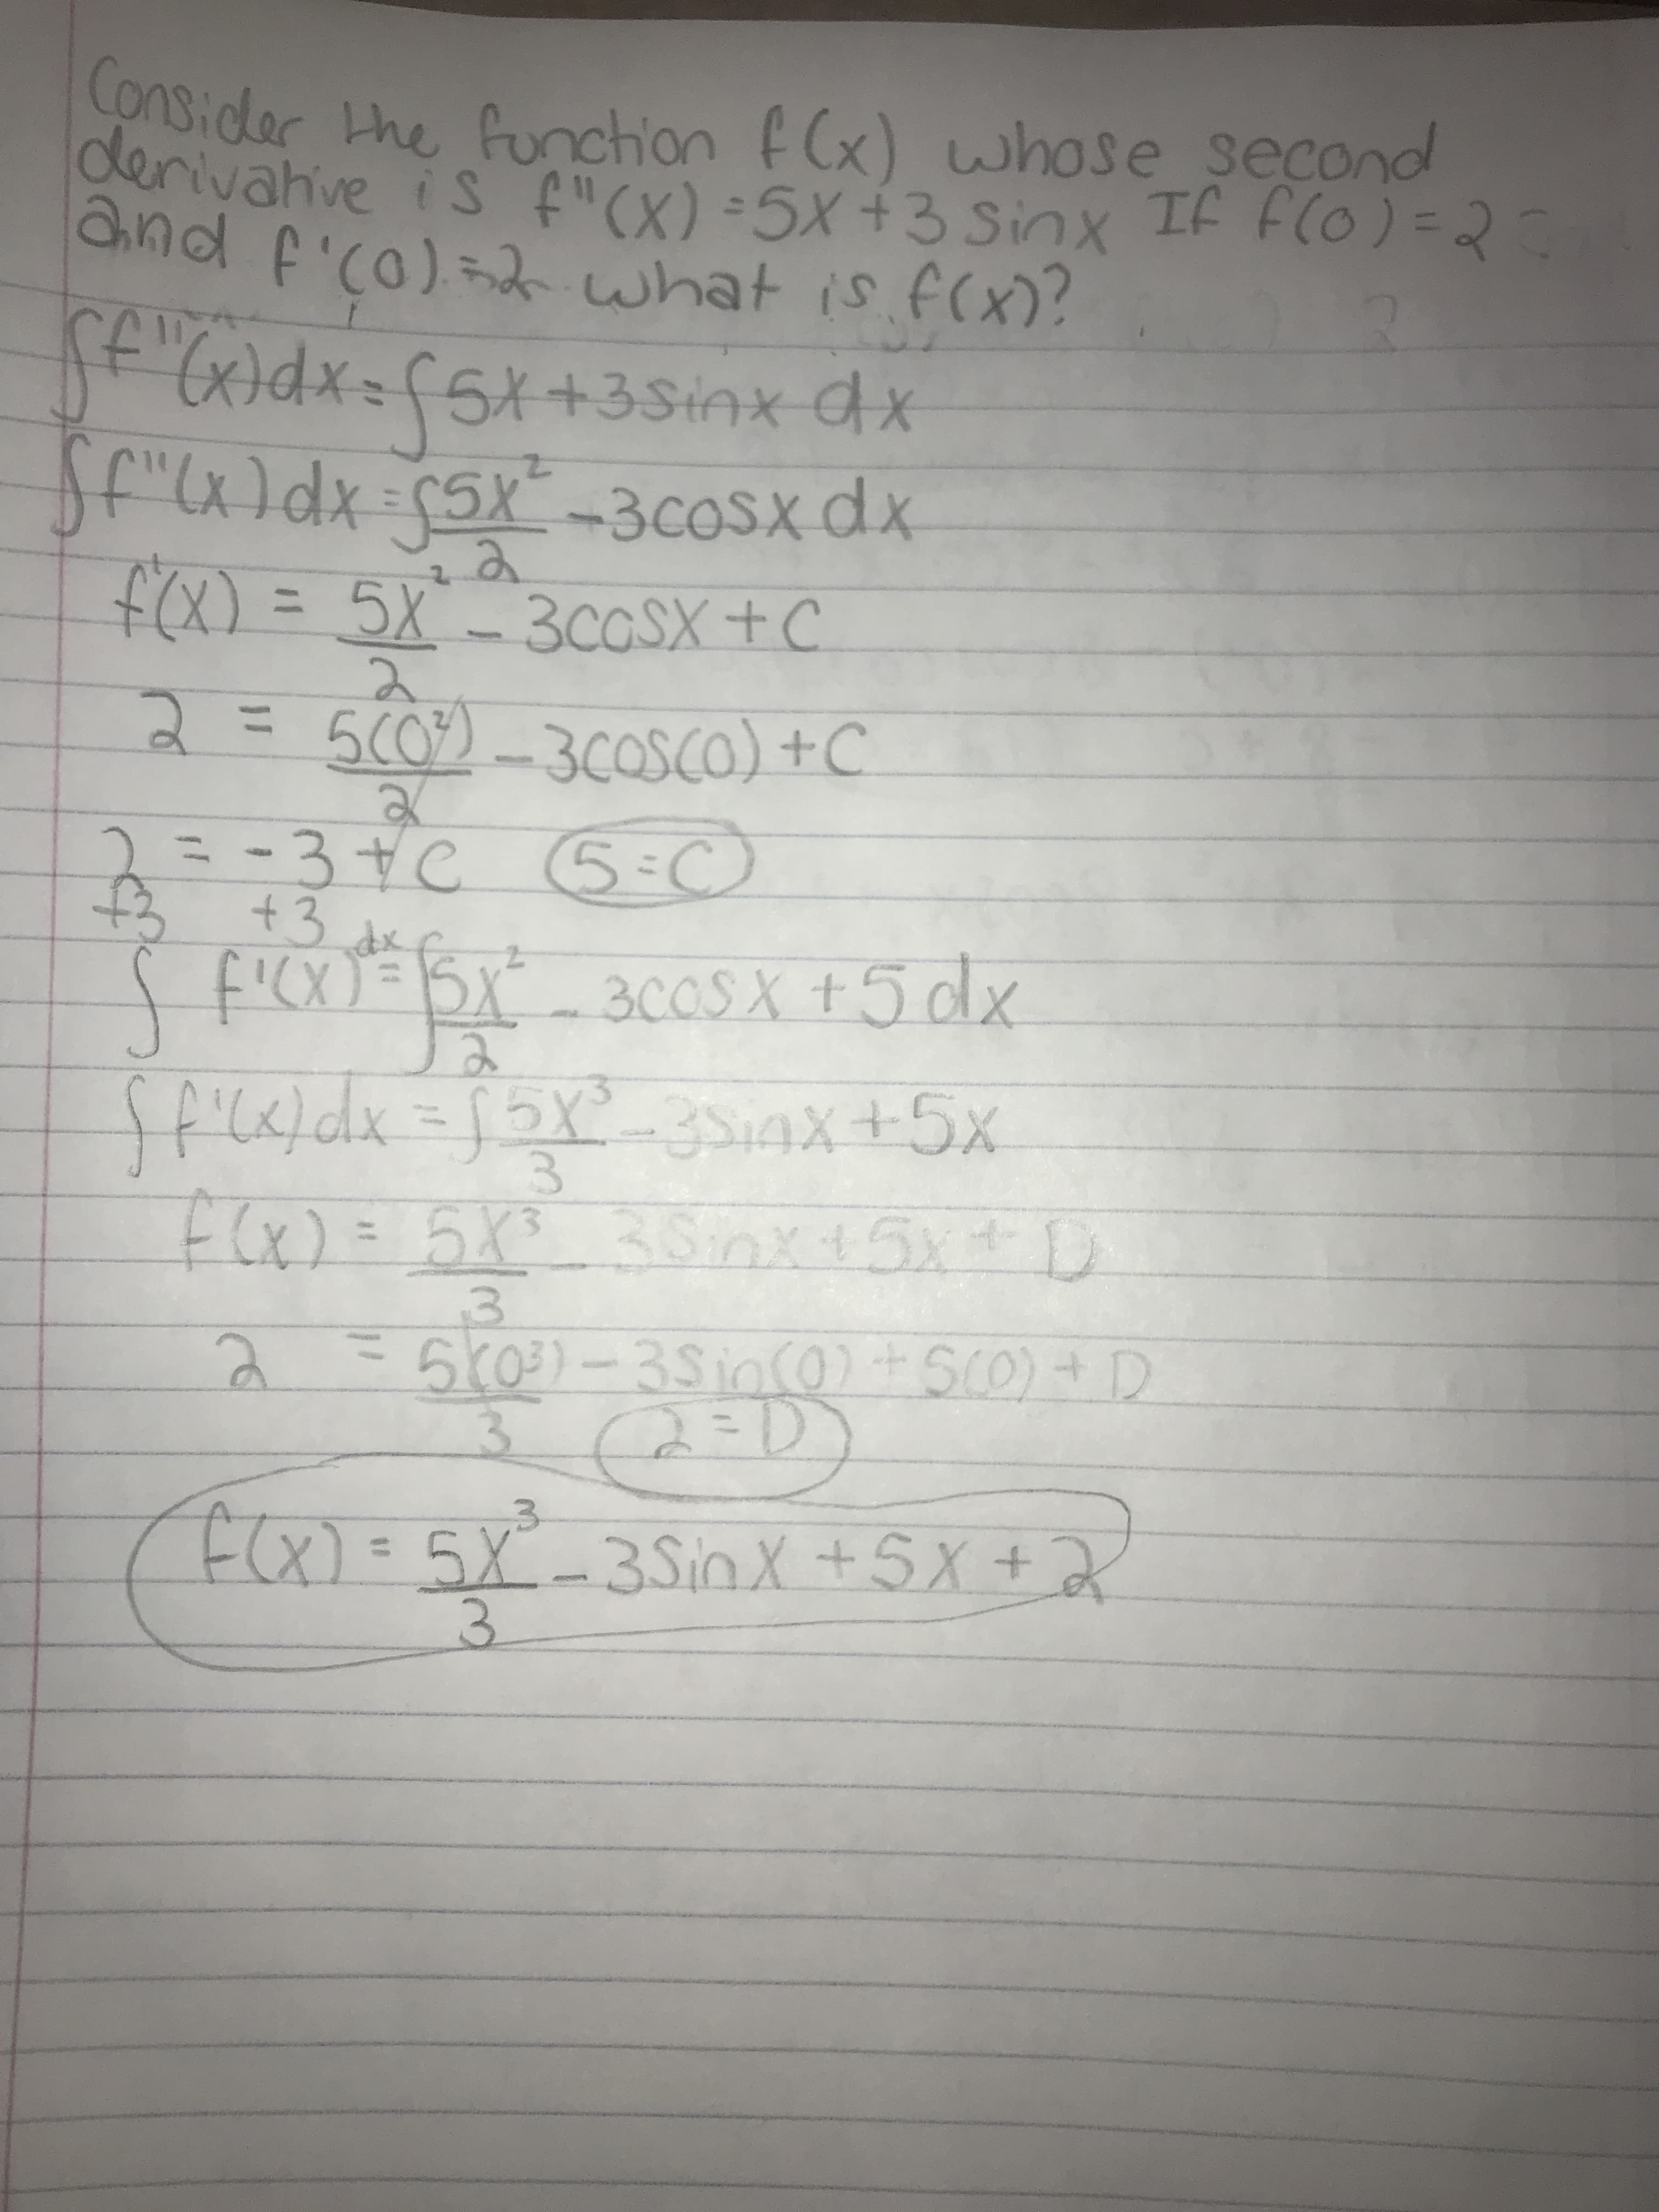 Consider the function f(x) whose second
derivative is f''(x) = 5x + 3 sinx If f(0) = 2
and f'(0) = 2 what is f(x)?
∫f''(x)dx = ∫5x + 3sinx dx
∫f''(x)dx = ∫5x²/2 - 3cosx dx
f'(x) = 5x²/2 - 3cosx + C
2 = 5(0²)/2 - 3cos(0) + C
2 = -3 + C 5 = C
+3 +3
∫ f'(x) dx = ∫5x²/2 - 3cosx + 5 dx
∫f'(x)dx = ∫5x³/3 - 3sinx + 5x
f(x) = 5x³/3 - 3sinx + 5x + D
2 = 5(0³)/3 - 3sin(0) + 5(0) + D
2 = D
f(x) = 5x³/3 - 3sinx + 5x + 2